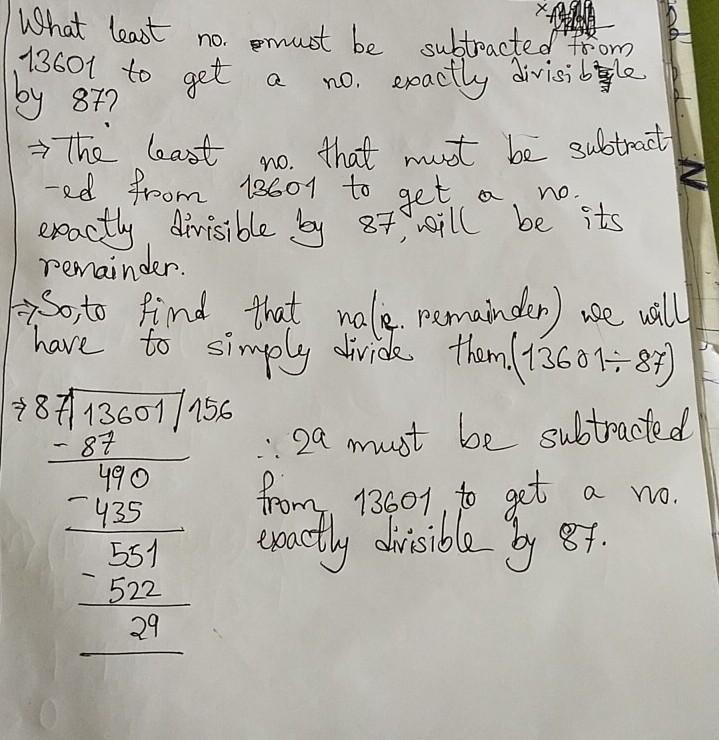 What least no. must be subtracted from
13601 to get a no. exactly divisible
by 87?
⇒ The least no. that must be subtract
-ed from 13601 to get a no.
exactly divisible by 87, will be its
remainder.
⇒ So, to find that no (ie. remainder) we will
have to simply divide them. (13601÷87)
⇒ 87) 13601 / 156
- 87
490
- 435
551
- 522
29
∴ 29 must be subtracted
from 13601 to get a no.
exactly divisible by 87.